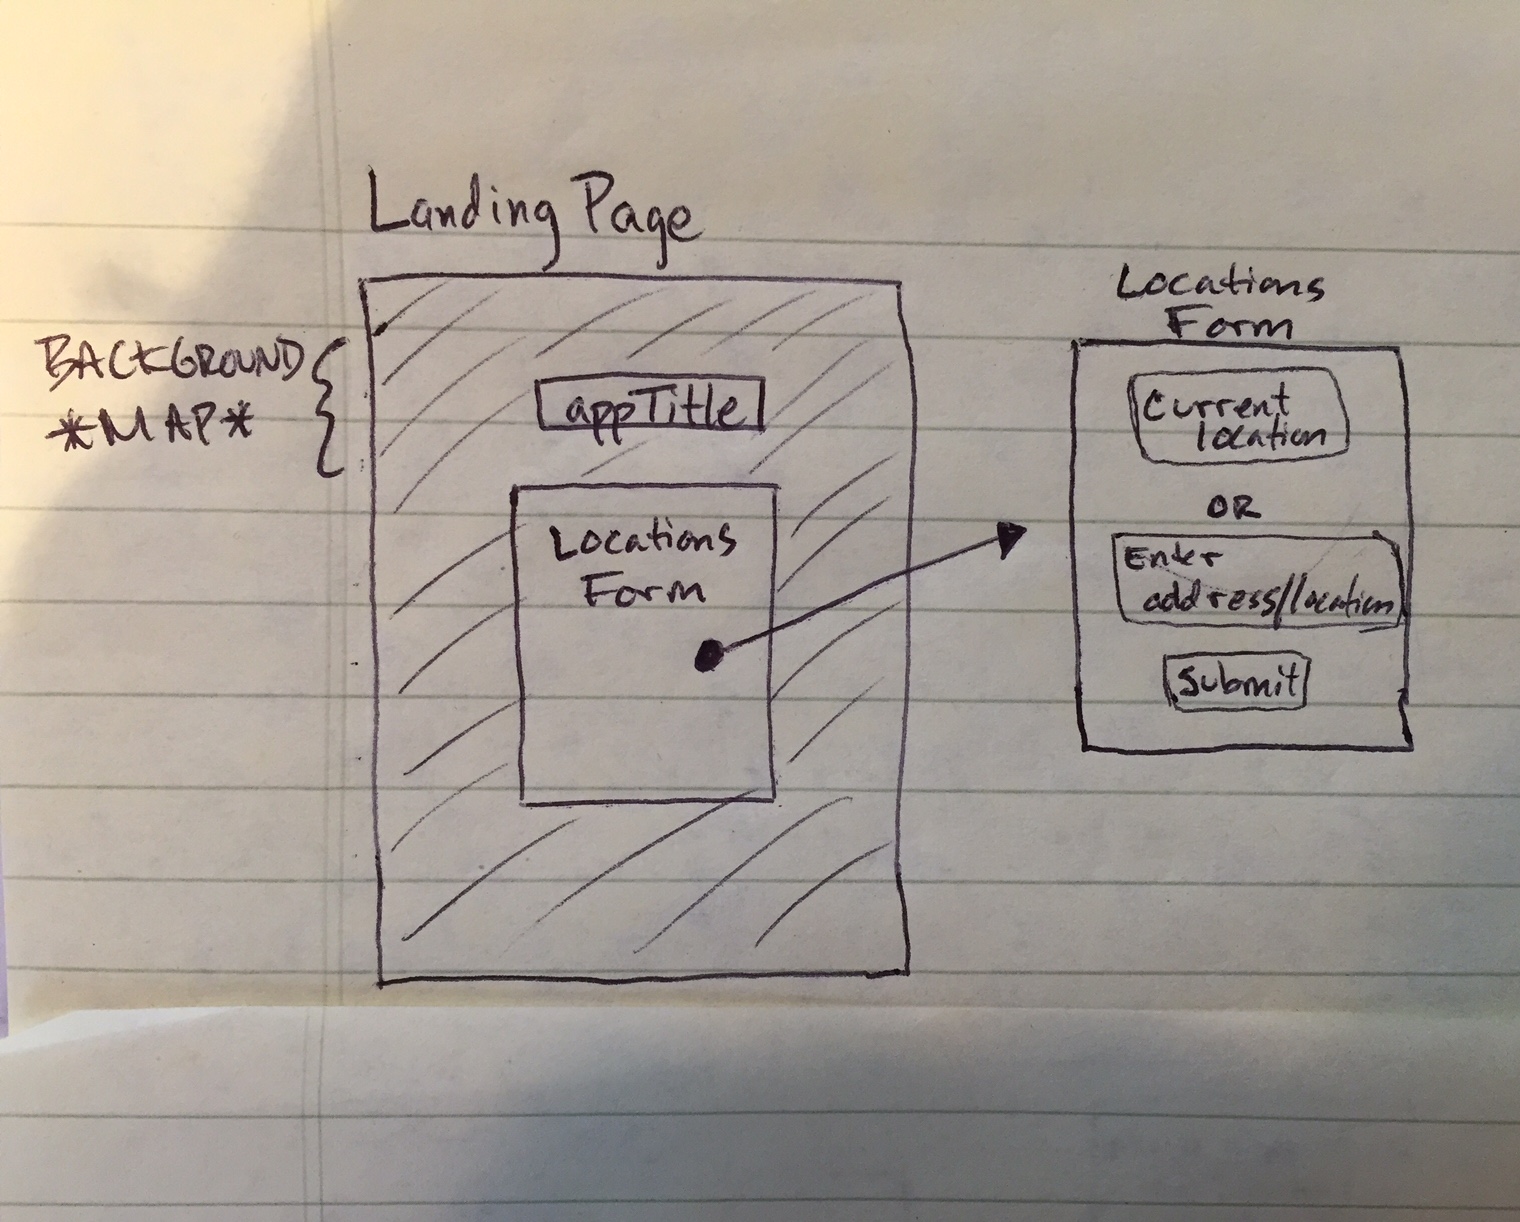 Landing Page
BACKGROUND
*MAP*
appTitle
Locations
Form
Locations
Form
Current
location
OR
Enter
address/location
Submit